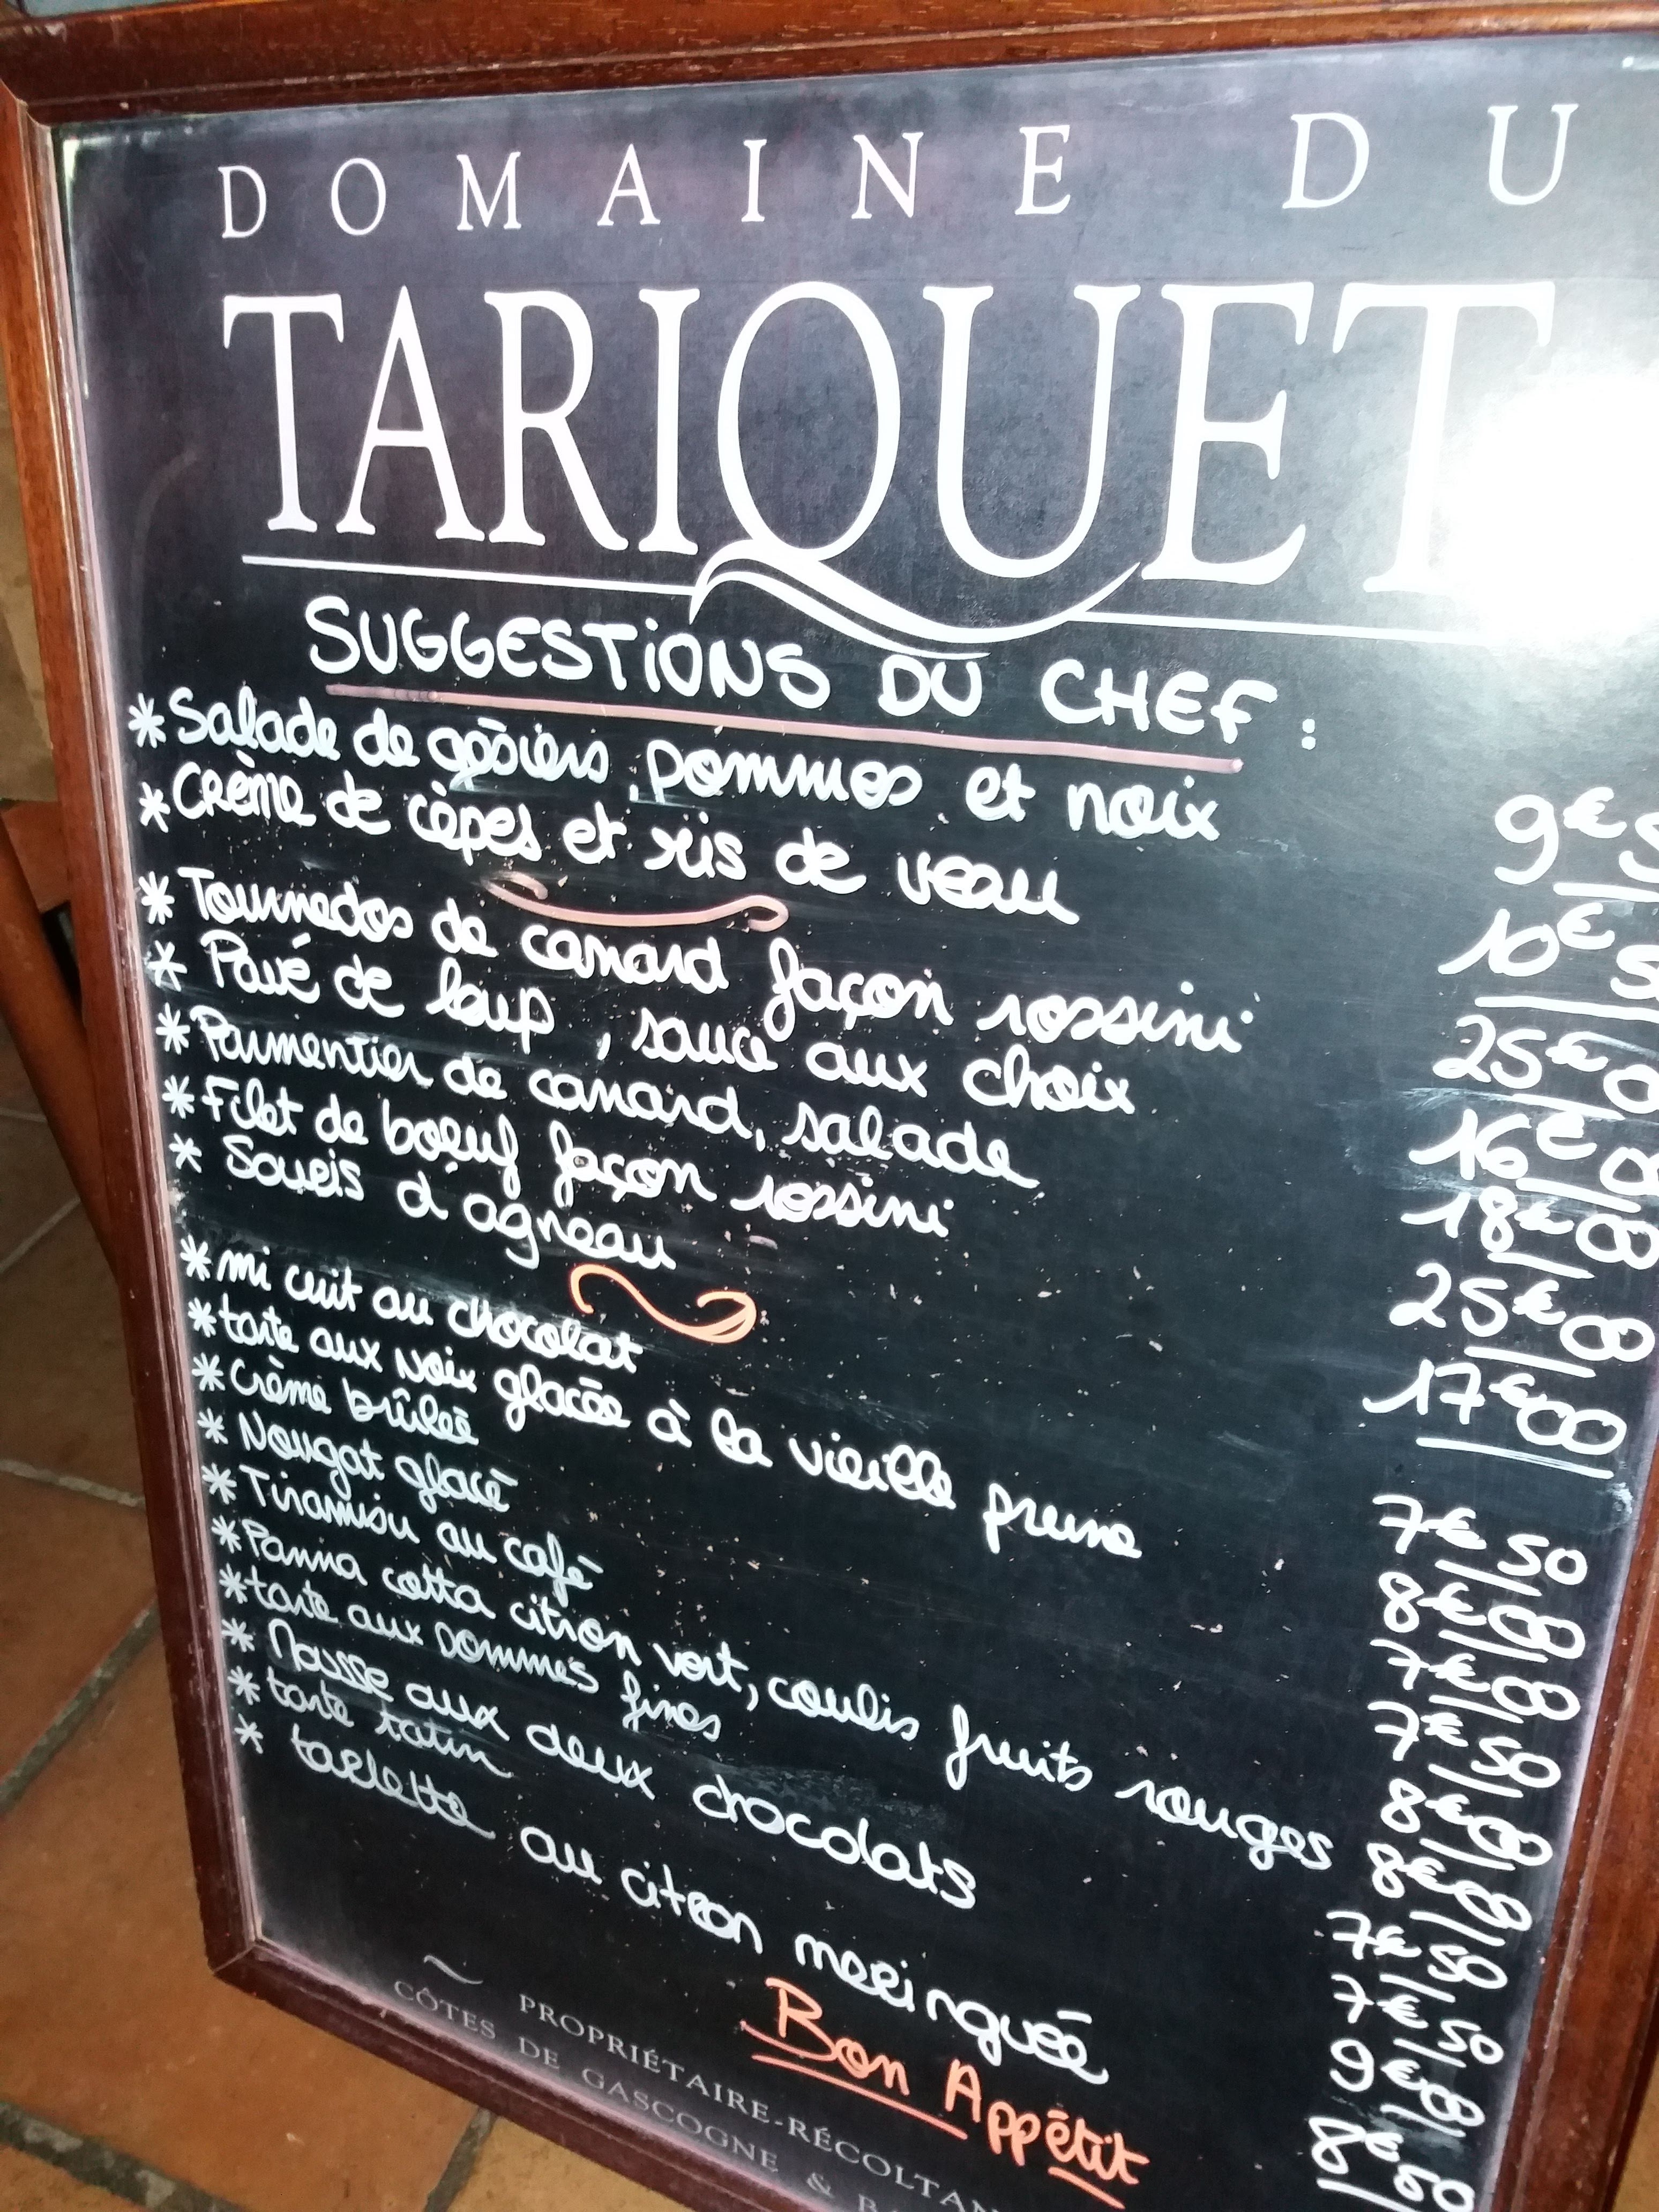 DOMAINE DU
TARIQUET
SUGGESTIONS DU CHEF :
* Salade de gésiers, pommes et noix 9€5
* Crème de cèpes et ris de veau 10€5
* Tournedos de canard façon rossini 25€0
* Pavé de loup, sauce aux choix 16€0
* Parmentier de canard, salade 18€00
* Filet de boeuf façon rossini 25€00
* Souris d'agneau 17€00
* mi cuit au chocolat 7€50
* tarte aux noix glacée à la vieille prune 8€00
* Crème brûlée 7€00
* Nougat glacé 7€50
* Tiramisu au café 8€00
* Panna cotta citron vert, coulis fruits rouges 8€00
* tarte aux pommes fines 7€50
* Mousse aux deux chocolats 7€50
* tarte tatin 9€00
* tarlette au citron meringuée 8€50
Bon Appétit
~ PROPRIÉTAIRE-RÉCOLTAN
CÔTES DE GASCOGNE & BA